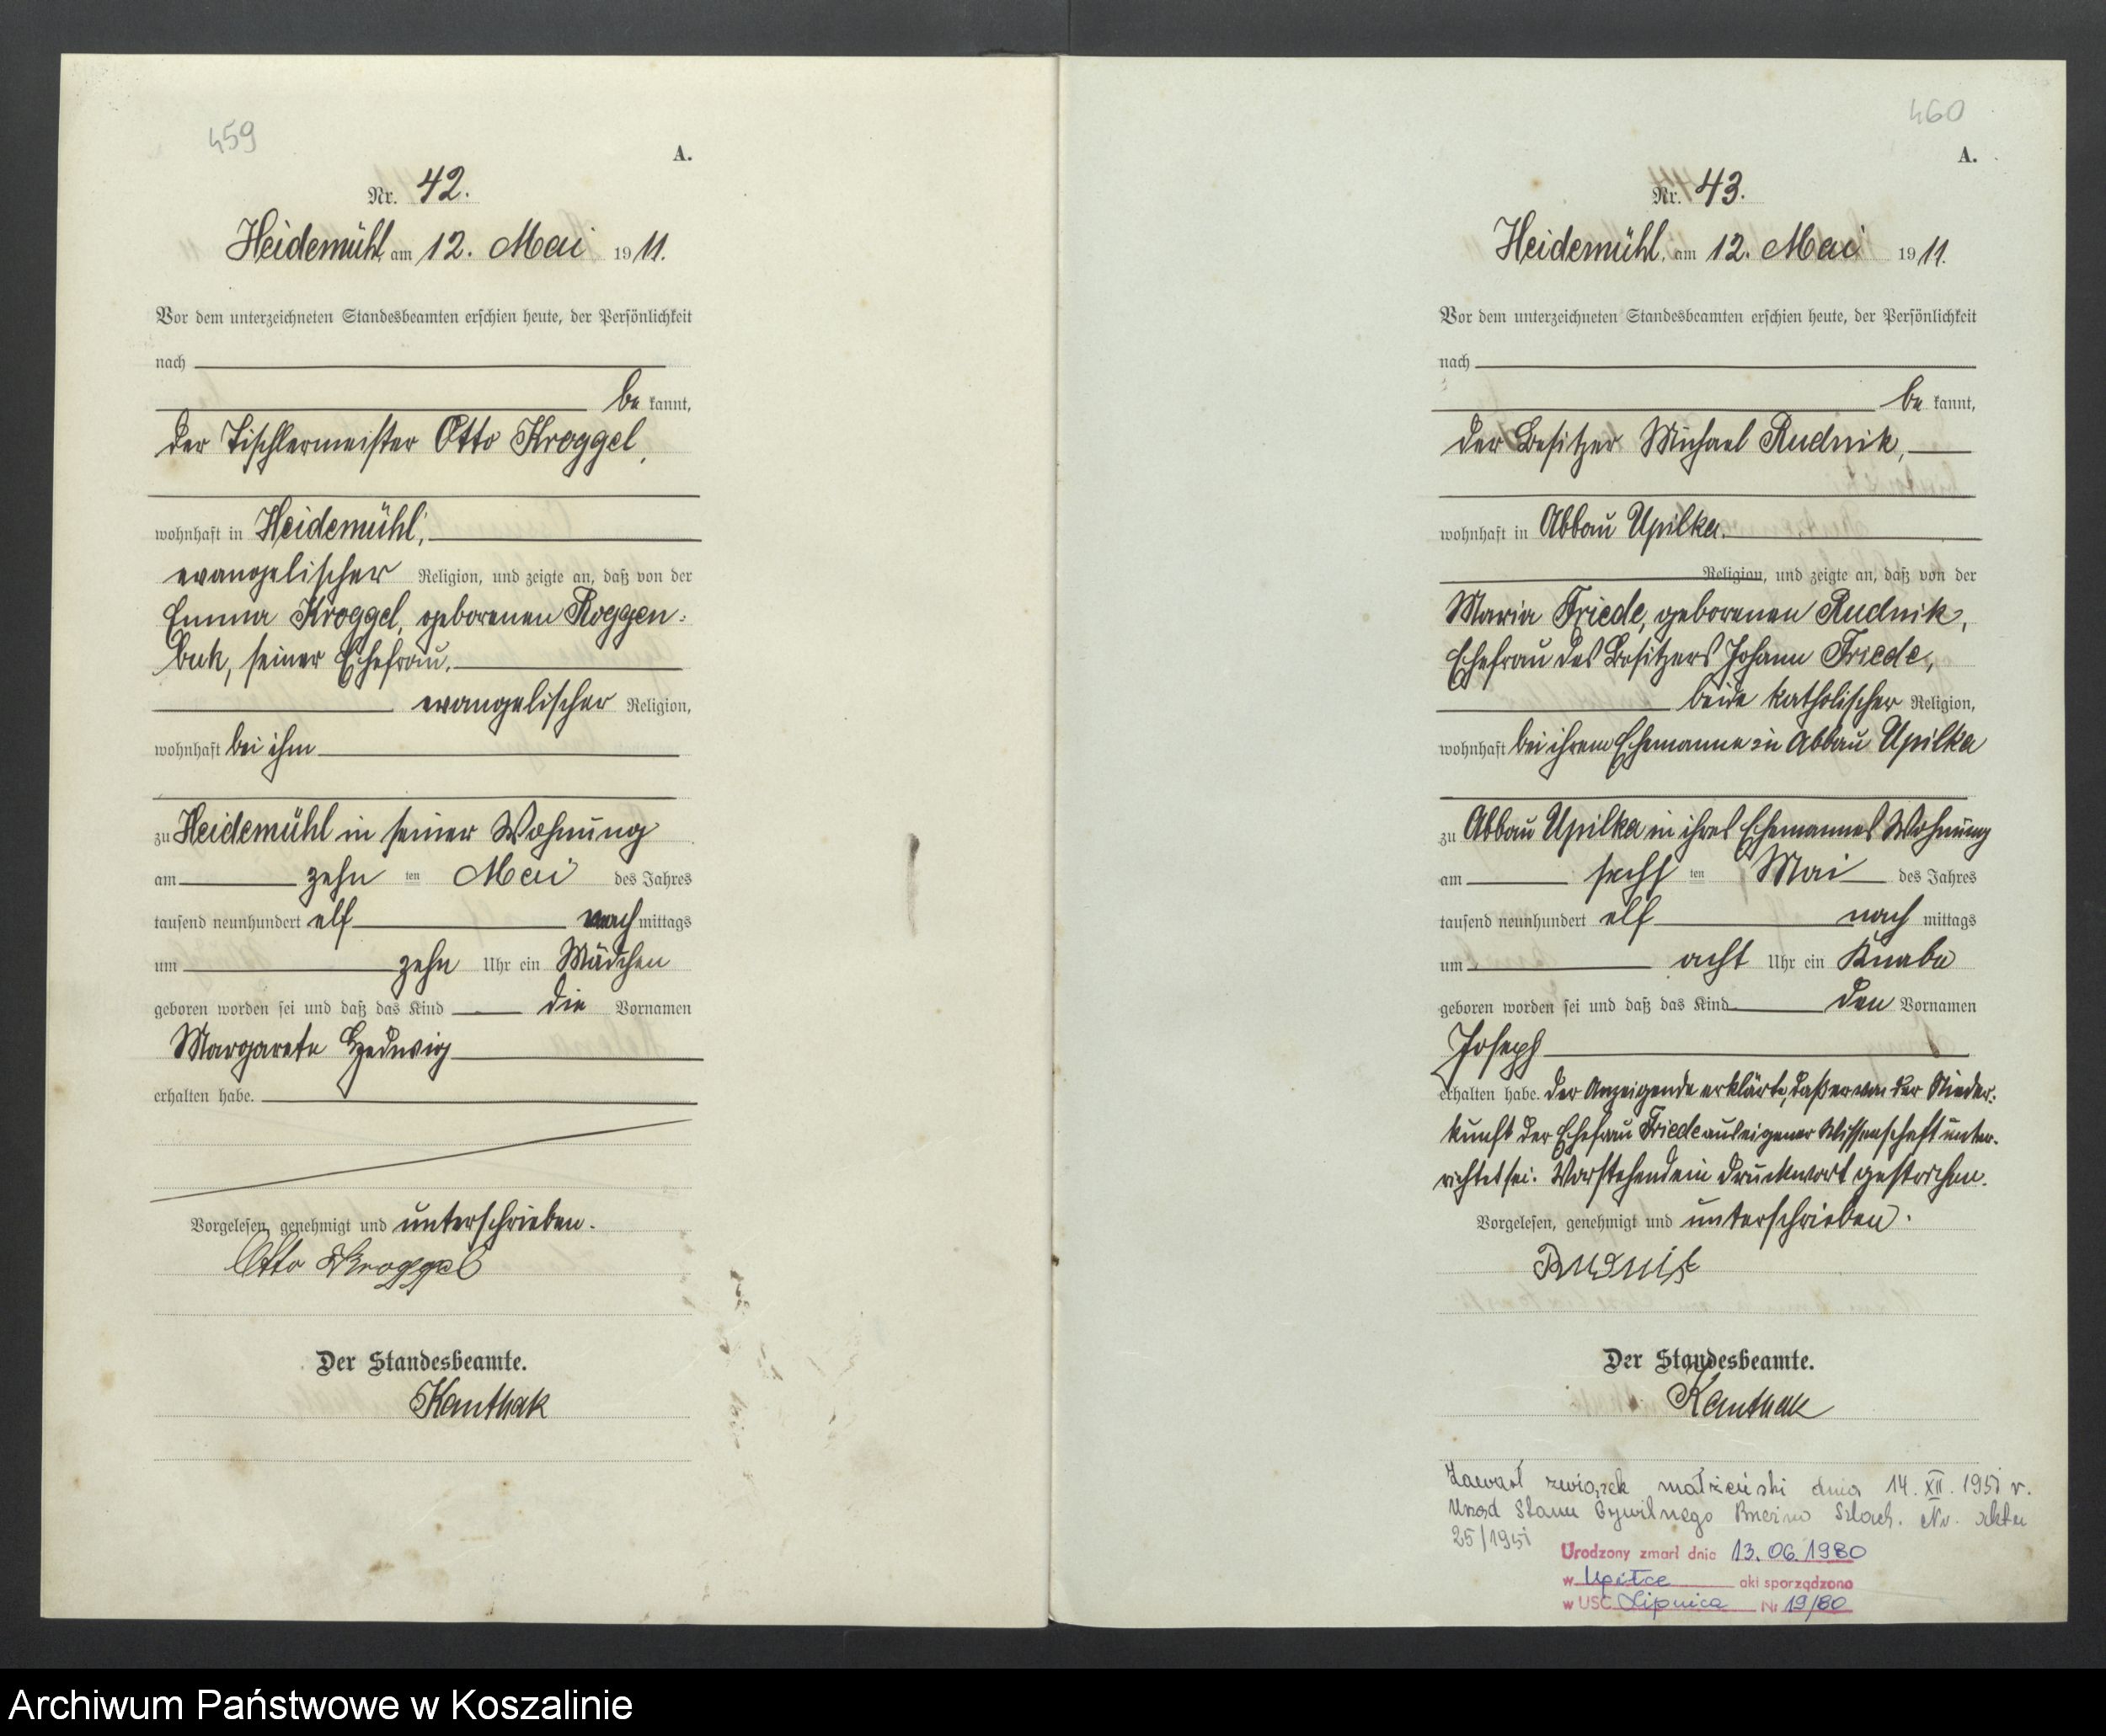 459
A.
Nr. 42.
Heidemühl, am 12. Mai 1911.
Vor dem unterzeichneten Standesbeamten erschien heute, der Persönlichkeit
nach
be kannt,
der Tischlermeister Otto Kroggel,
wohnhaft in Heidemühl,
evangelischer Religion, und zeigte an, daß von der
Emma Kroggel, geborenen Roggen-
buck, seiner Ehefrau,
evangelischer Religion,
wohnhaft bei ihm
zu Heidemühl in seiner Wohnung
am zehn ten Mai des Jahres
tausend neunhundert elf nach mittags
um zehn Uhr ein Mädchen
geboren worden sei und daß das Kind die Vornamen
Margarete Hedwig
erhalten habe.
Vorgelesen, genehmigt und unterschrieben.
Otto Kroggel
Der Standesbeamte.
Kanthak
460
A.
Nr. 43.
Heidemühl, am 12. Mai 1911.
Vor dem unterzeichneten Standesbeamten erschien heute, der Persönlichkeit
nach
be kannt,
der Besitzer Michael Rudnik,
wohnhaft in Abbau Upilka.
Religion, und zeigte an, daß von der
Maria Friede, geborenen Rudnik,
Ehefrau des Besitzers Johann Friede,
beide katholischer Religion,
wohnhaft bei ihrem Ehemanne in Abbau Upilka
zu Abbau Upilka in ihres Ehemannes Wohnung
am sechs ten Mai des Jahres
tausend neunhundert elf nach mittags
um acht Uhr ein Knabe
geboren worden sei und daß das Kind den Vornamen
Joseph
erhalten habe. Der Anzeigende erklärte, daß er von der Nieder-
kunft der Ehefrau Friede aus eigener Wissenschaft unter-
richtet sei. Vorstehend ein Druckwort gestrichen.
Vorgelesen, genehmigt und unterschrieben.
Rudnik
Der Standesbeamte.
Kanthak
Zawarł związek małżeński dnia 14. XII. 1951 r.
Urząd Stanu Cywilnego Brzeźno Szlach. Nr. aktu
25/1951
Urodzony zmarł dnia 13. 06. 1980
w Upiłce akt sporządzono
w USC Lipnica Nr 19/80
Archiwum Państwowe w Koszalinie